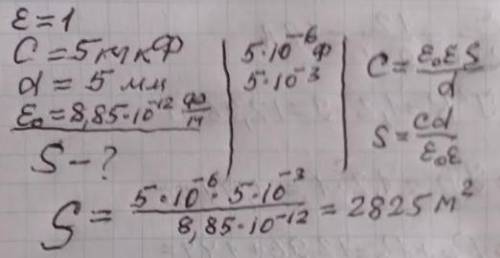 ε=1
C=5мкФ
d=5мм
ε₀=8,85·10⁻¹² Ф/м
S-?
5·10⁻⁶Ф
5·10⁻³
C=ε₀εS/d
S=cd/ε₀ε
S=5·10⁻⁶·5·10⁻³/8,85·10⁻¹²=2825м²